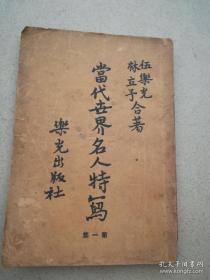 伍樂光
林立予
合著
當代世界名人特寫
第一集
樂光出版社
孔夫子旧书网